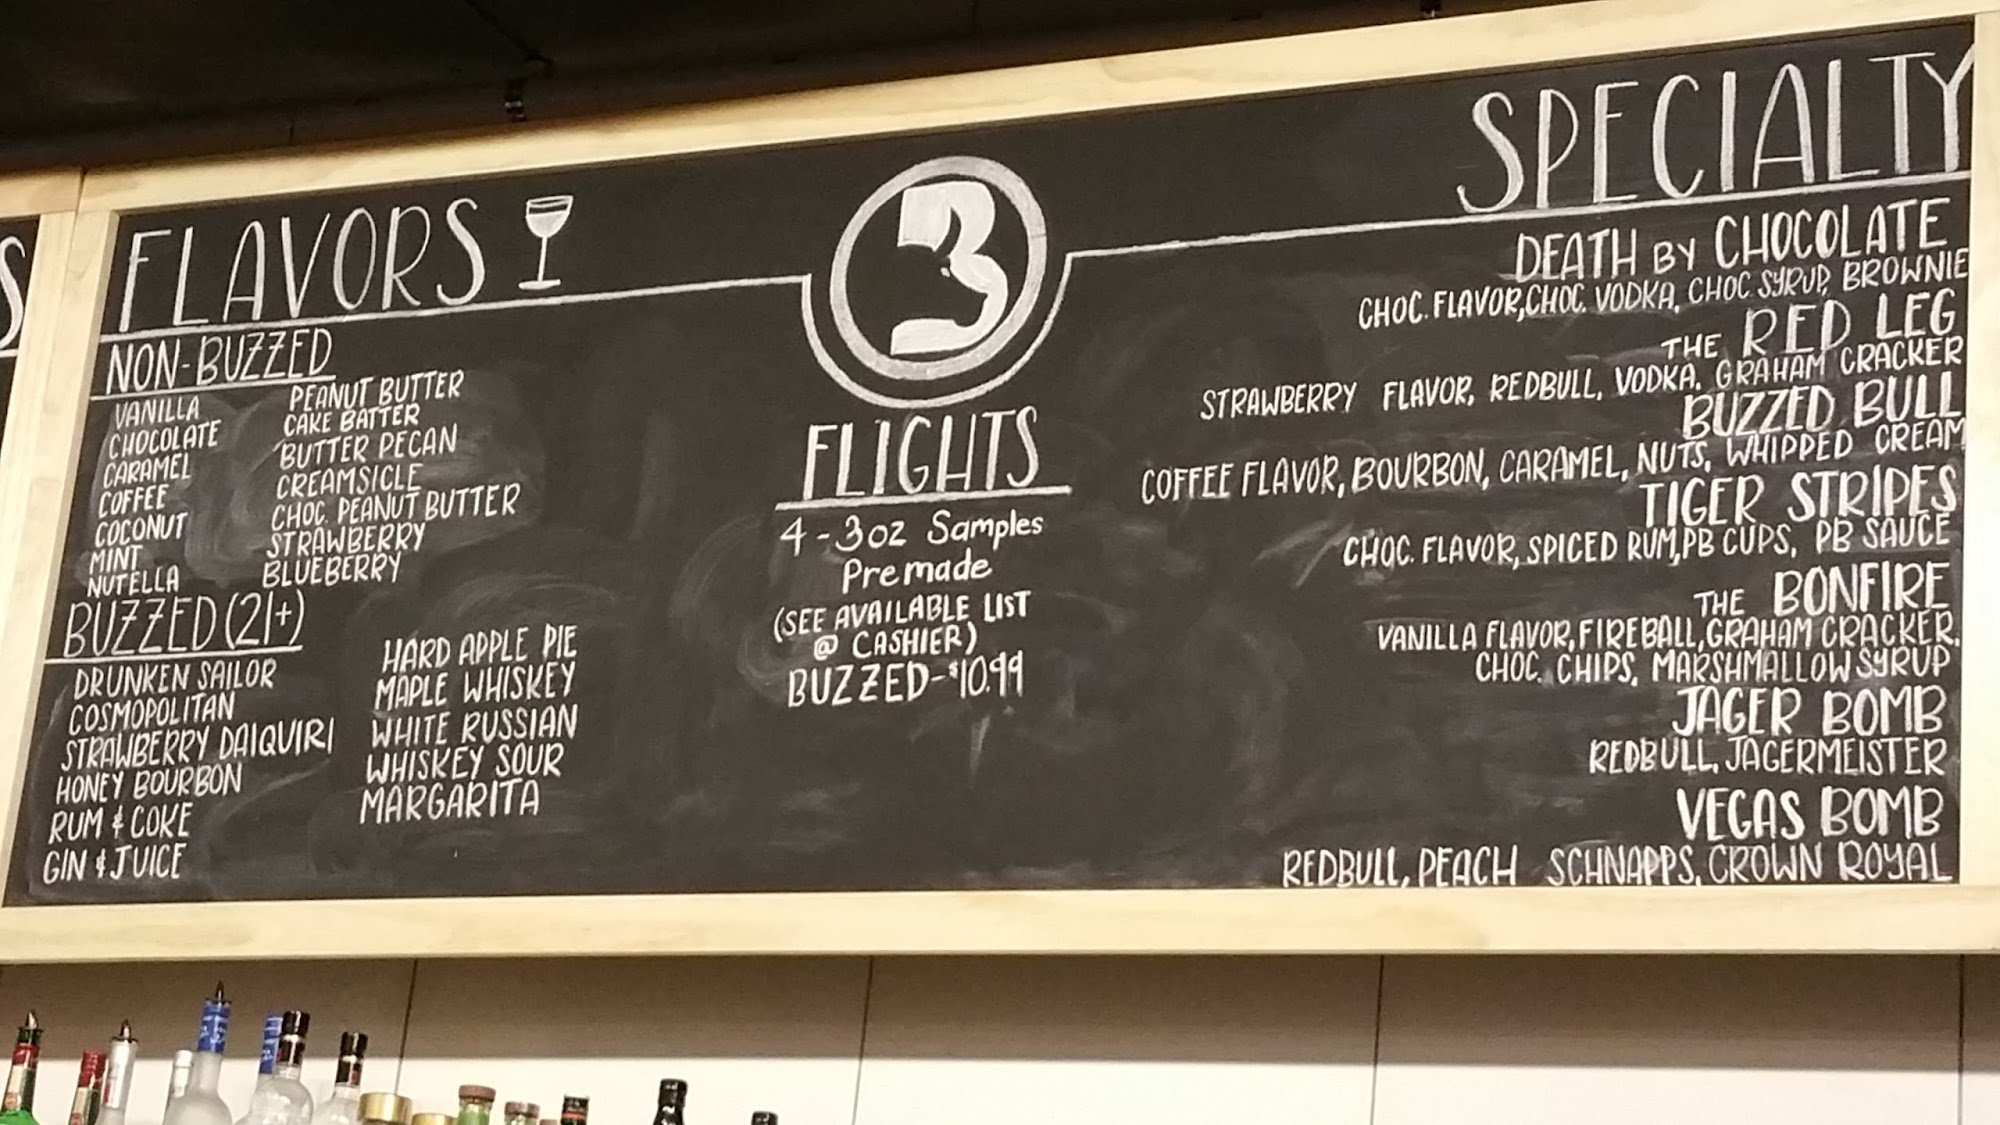 S
FLAVORS
NON-BUZZED
VANILLA
CHOCOLATE
CARAMEL
COFFEE
COCONUT
MINT
NUTELLA
PEANUT BUTTER
CAKE BATTER
BUTTER PECAN
CREAMSICLE
CHOC. PEANUT BUTTER
STRAWBERRY
BLUEBERRY
BUZZED (21+)
DRUNKEN SAILOR
COSMOPOLITAN
STRAWBERRY DAIQUIRI
HONEY BOURBON
RUM & COKE
GIN & JUICE
HARD APPLE PIE
MAPLE WHISKEY
WHITE RUSSIAN
WHISKEY SOUR
MARGARITA
3
FLIGHTS
4 - 3oz Samples
Premade
(SEE AVAILABLE LIST
@ CASHIER)
BUZZED-$10.99
SPECIALTY
DEATH BY CHOCOLATE
CHOC. FLAVOR, CHOC. VODKA, CHOC SYRUP, BROWNIE
THE RED LEG
STRAWBERRY FLAVOR, REDBULL, VODKA, GRAHAM CRACKER
BUZZED BULL
COFFEE FLAVOR, BOURBON, CARAMEL, NUTS, WHIPPED CREAM
TIGER STRIPES
CHOC. FLAVOR, SPICED RUM, PB CUPS, PB SAUCE
THE BONFIRE
VANILLA FLAVOR, FIREBALL, GRAHAM CRACKER,
CHOC. CHIPS, MARSHMALLOW SYRUP
JAGER BOMB
REDBULL, JAGERMEISTER
VEGAS BOMB
REDBULL, PEACH SCHNAPPS, CROWN ROYAL